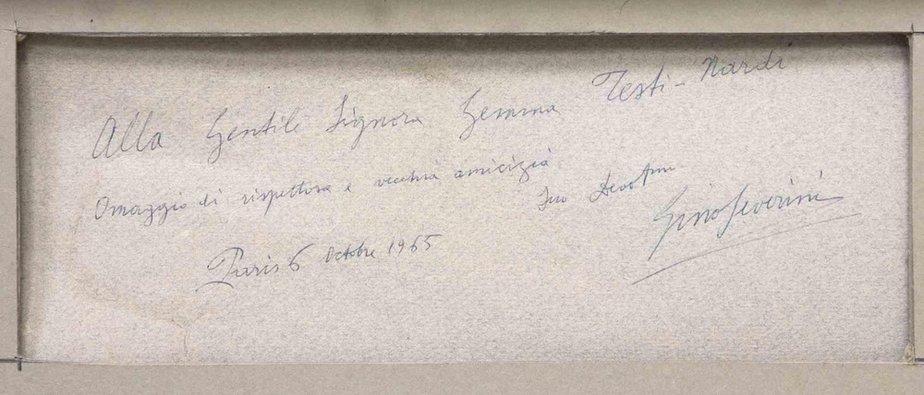 Alla Gentile Signora Gemma Testi-Nardi
Omaggio di rispettosa e vecchia amicizia
Suo Devotmo
Gino Severini
Paris 6 Octobre 1965